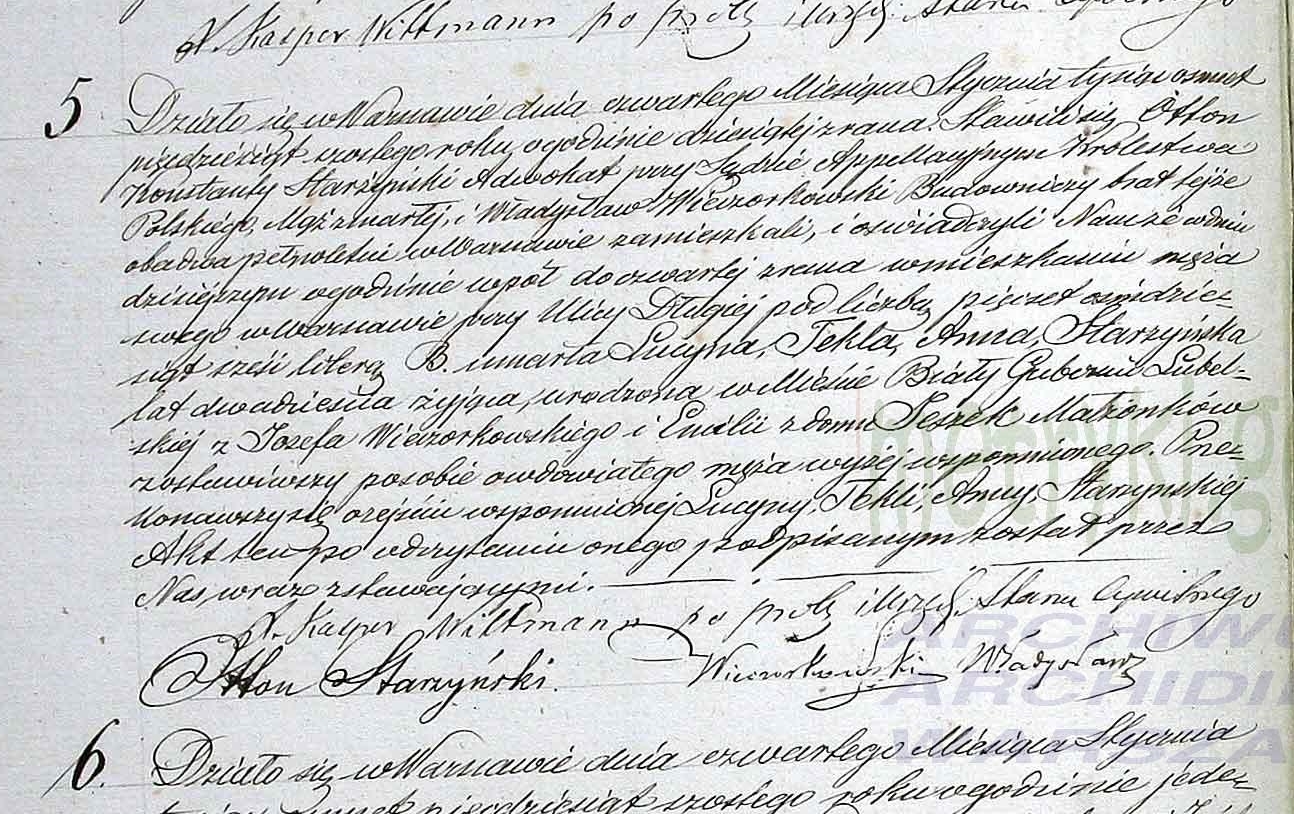 X. Kasper Wittmann po prob i Urzęd: Stanu Cywilnego
5 Działo się w Warszawie dnia czwartego Miesiąca Stycznia tysiąc osmset
pięćdziesiąt szostego roku, o godzinie dziesiątej z rana. Stawili się Otton
Konstanty Starżyński Adwokat przy Sądzie Appellacyjnym Królestwa
Polskiego, Mąż zmarłej, i Władysław Wieczorkowski Budowniczy brat tejże
obadwa pełnoletni w Warszawie zamieszkali, i oświadczyli Nam że w dniu
dzisiejszym o godzinie wpół do czwartej z rana w mieszkaniu męża
swego w Warszawie przy Ulicy Długiej pod liczbą pięcset ośmdzie-
siąt sześć literą B. umarła Lucyna, Tekla, Anna, Starzyńska
lat dwadzieścia żyjąca, urodzona w Mieście Biały Gubernii Lubel-
skiej z Jozefa Wieczorkowskiego i Emilii z domu Peszek Małżonków
zostawiwszy po sobie owdowiałego męża wyżej wspomnionego. Prze-
konawszy się o zejściu wspomnionej Lucyny, Tekli, Anny, Starzynskiej
Akt ten po odczytaniu onego podpisanym został przez
Nas, wraz z stawającymi.
X. Kasper Wittmann po prob i Urzęd: Stanu Cywilnego
Otton Starzyński. Wieczorkowski Władysław
6. Działo się w Warszawie dnia czwartego Miesiąca Stycznia
pięćdziesiąt szostego roku o godzinie jede-
ARCHIWU
ARCHIDIE
WARSZA